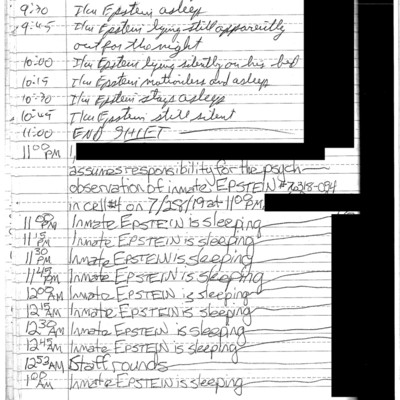 9:30 I/m Epstein asleep
9:45 I/m Epstein lying still apparently
out for the night
10:00 I/m Epstein lying silently on his bed
10:15 I/m Epstein motionless and asleep
10:30 I/m Epstein stays asleep
10:45 I/m Epstein still silent
11:00 END SHIFT
11:00 PM I,
assumes responsibility for the psych
observation of inmate EPSTEIN #76318-054
in cell #4 on 7/28/19 at 11:00PM.
11:00 PM Inmate EPSTEIN is sleeping
11:15 PM Inmate EPSTEIN is sleeping
11:30 PM Inmate EPSTEIN is sleeping
11:45 PM Inmate EPSTEIN is sleeping
12:00 AM Inmate EPSTEIN is sleeping
12:15 AM Inmate EPSTEIN is sleeping
12:30 AM Inmate EPSTEIN is sleeping
12:45 AM Inmate EPSTEIN is sleeping
12:52 AM Staff rounds
1:00 AM Inmate EPSTEIN is sleeping